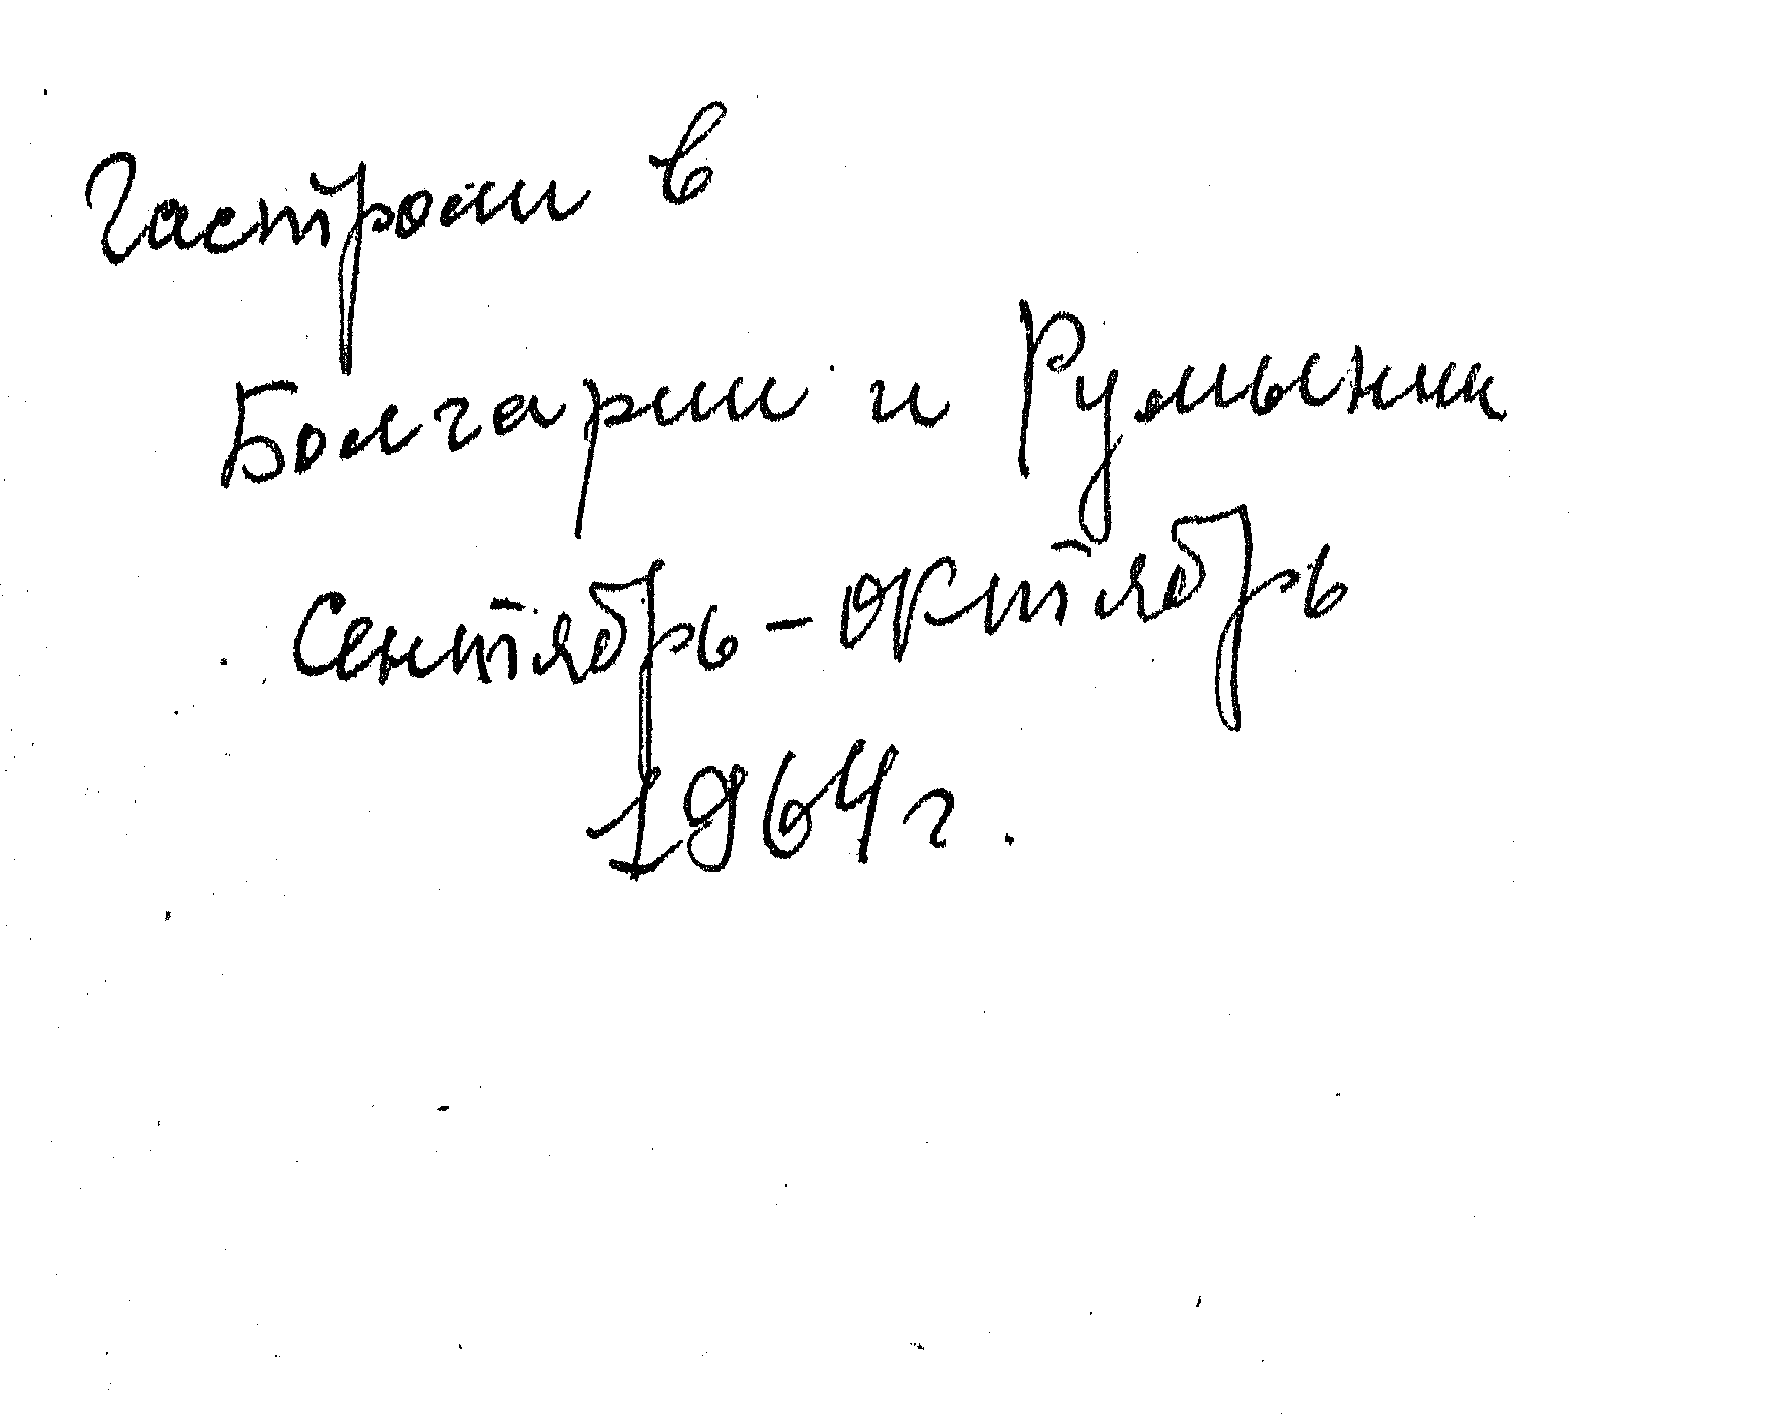 Гастроли в
Болгарии и Румынии
Сентябрь - октябрь
1964 г.